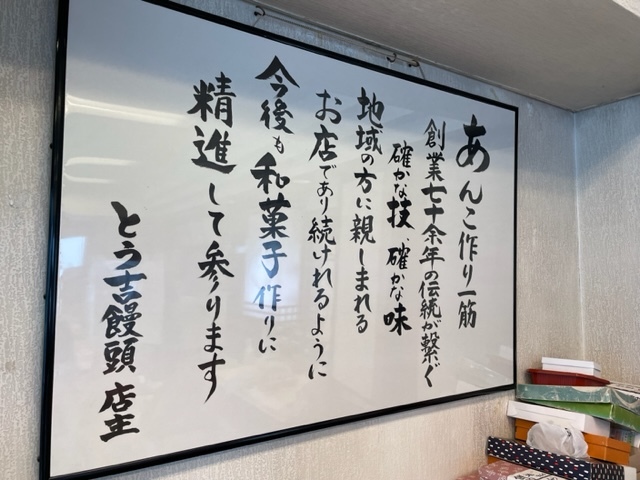 あんこ作り一筋
創業七十余年の伝統が繋ぐ
確かな技、確かな味
地域の方に親しまれる
お店であり続けれるように
今後も和菓子作りに
精進して参ります
とう吉饅頭 店主